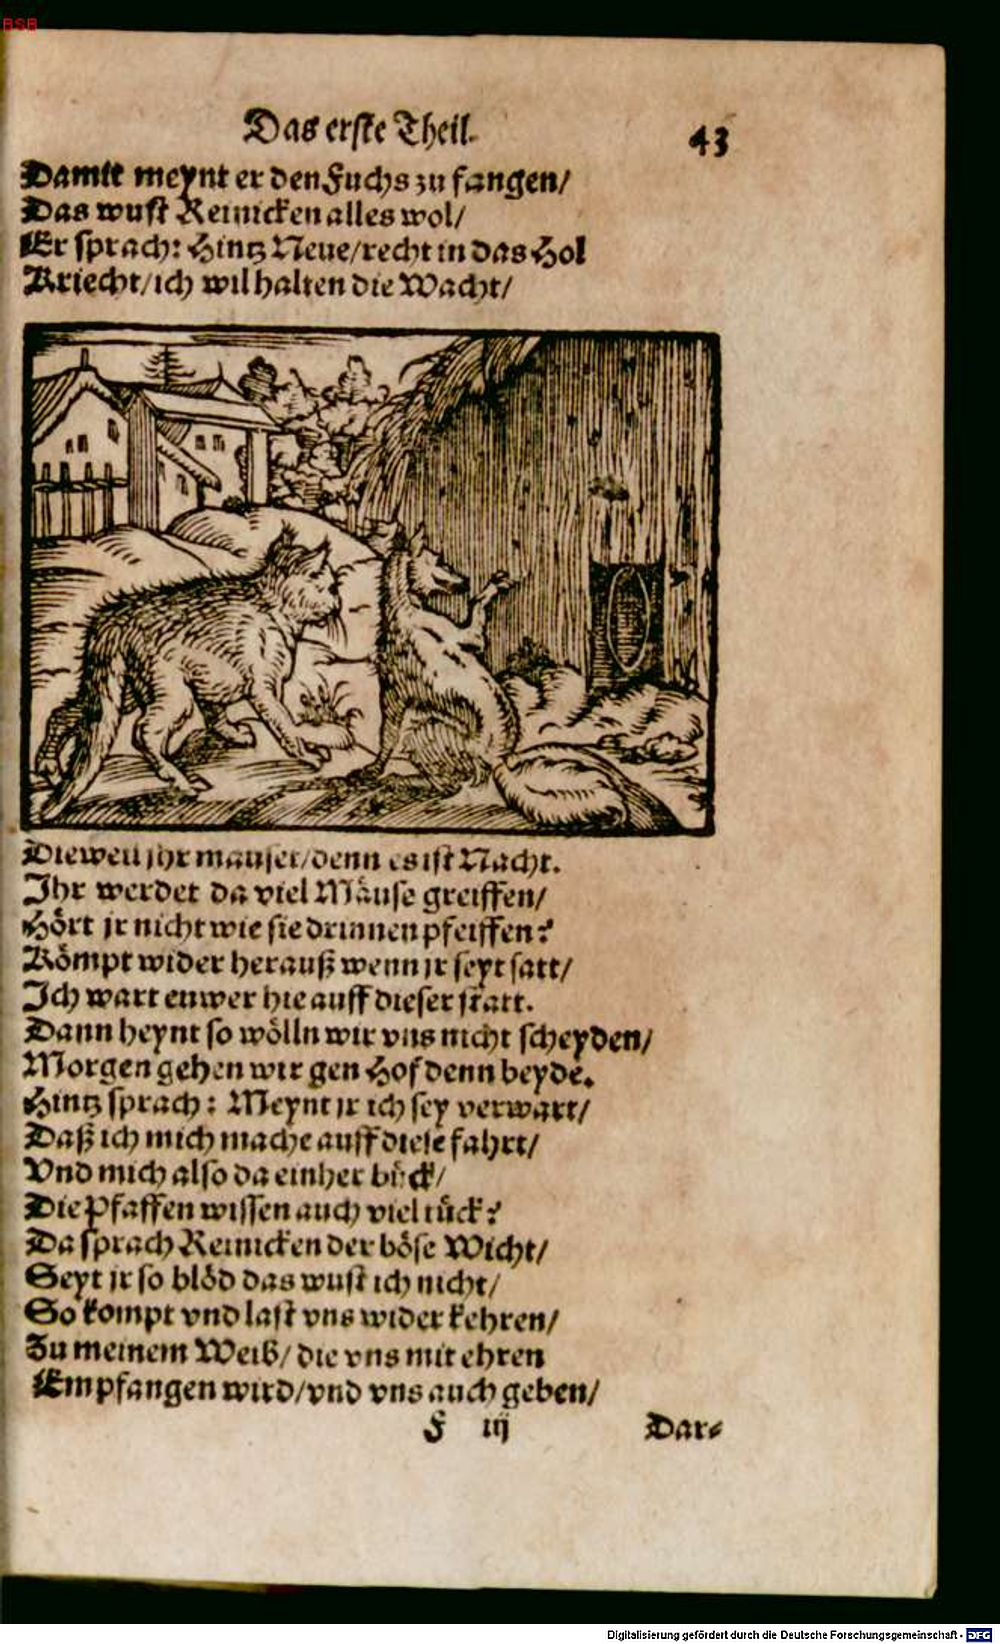 BSB
Das erste Theil. 43
Damit meynt er den Fuchs zu fangen/
Das wust Reinicken alles wol/
Er sprach: Hintz Neue/recht in das Hol
Kriecht/ich wil halten die Wacht/
Dieweil jhr mauset/denn es ist Nacht.
Ihr werdet da viel Mäuse greiffen/
Hört jr nicht wie sie drinnen pfeiffen?
Kömpt wider herauß wenn jr seyt satt/
Ich wart euwer hie auff dieser statt.
Dann heynt so wölln wir vns nicht scheyden/
Morgen gehen wir gen Hof denn beyde.
Hintz sprach: Meynt jr ich sey verwart/
Daß ich mich mache auff diese fahrt/
Vnd mich also da einher bück/
Die Pfaffen wissen auch viel tück?
Da sprach Reinicken der böse Wicht/
Seyt jr so blöd das wust ich nicht/
So kompt vnd last vns wider kehren/
Zu meinem Weib/die vns mit ehren
Empfangen wird/vnd vns auch geben/
F iij Dar-
Digitalisierung gefördert durch die Deutsche Forschungsgemeinschaft - DFG